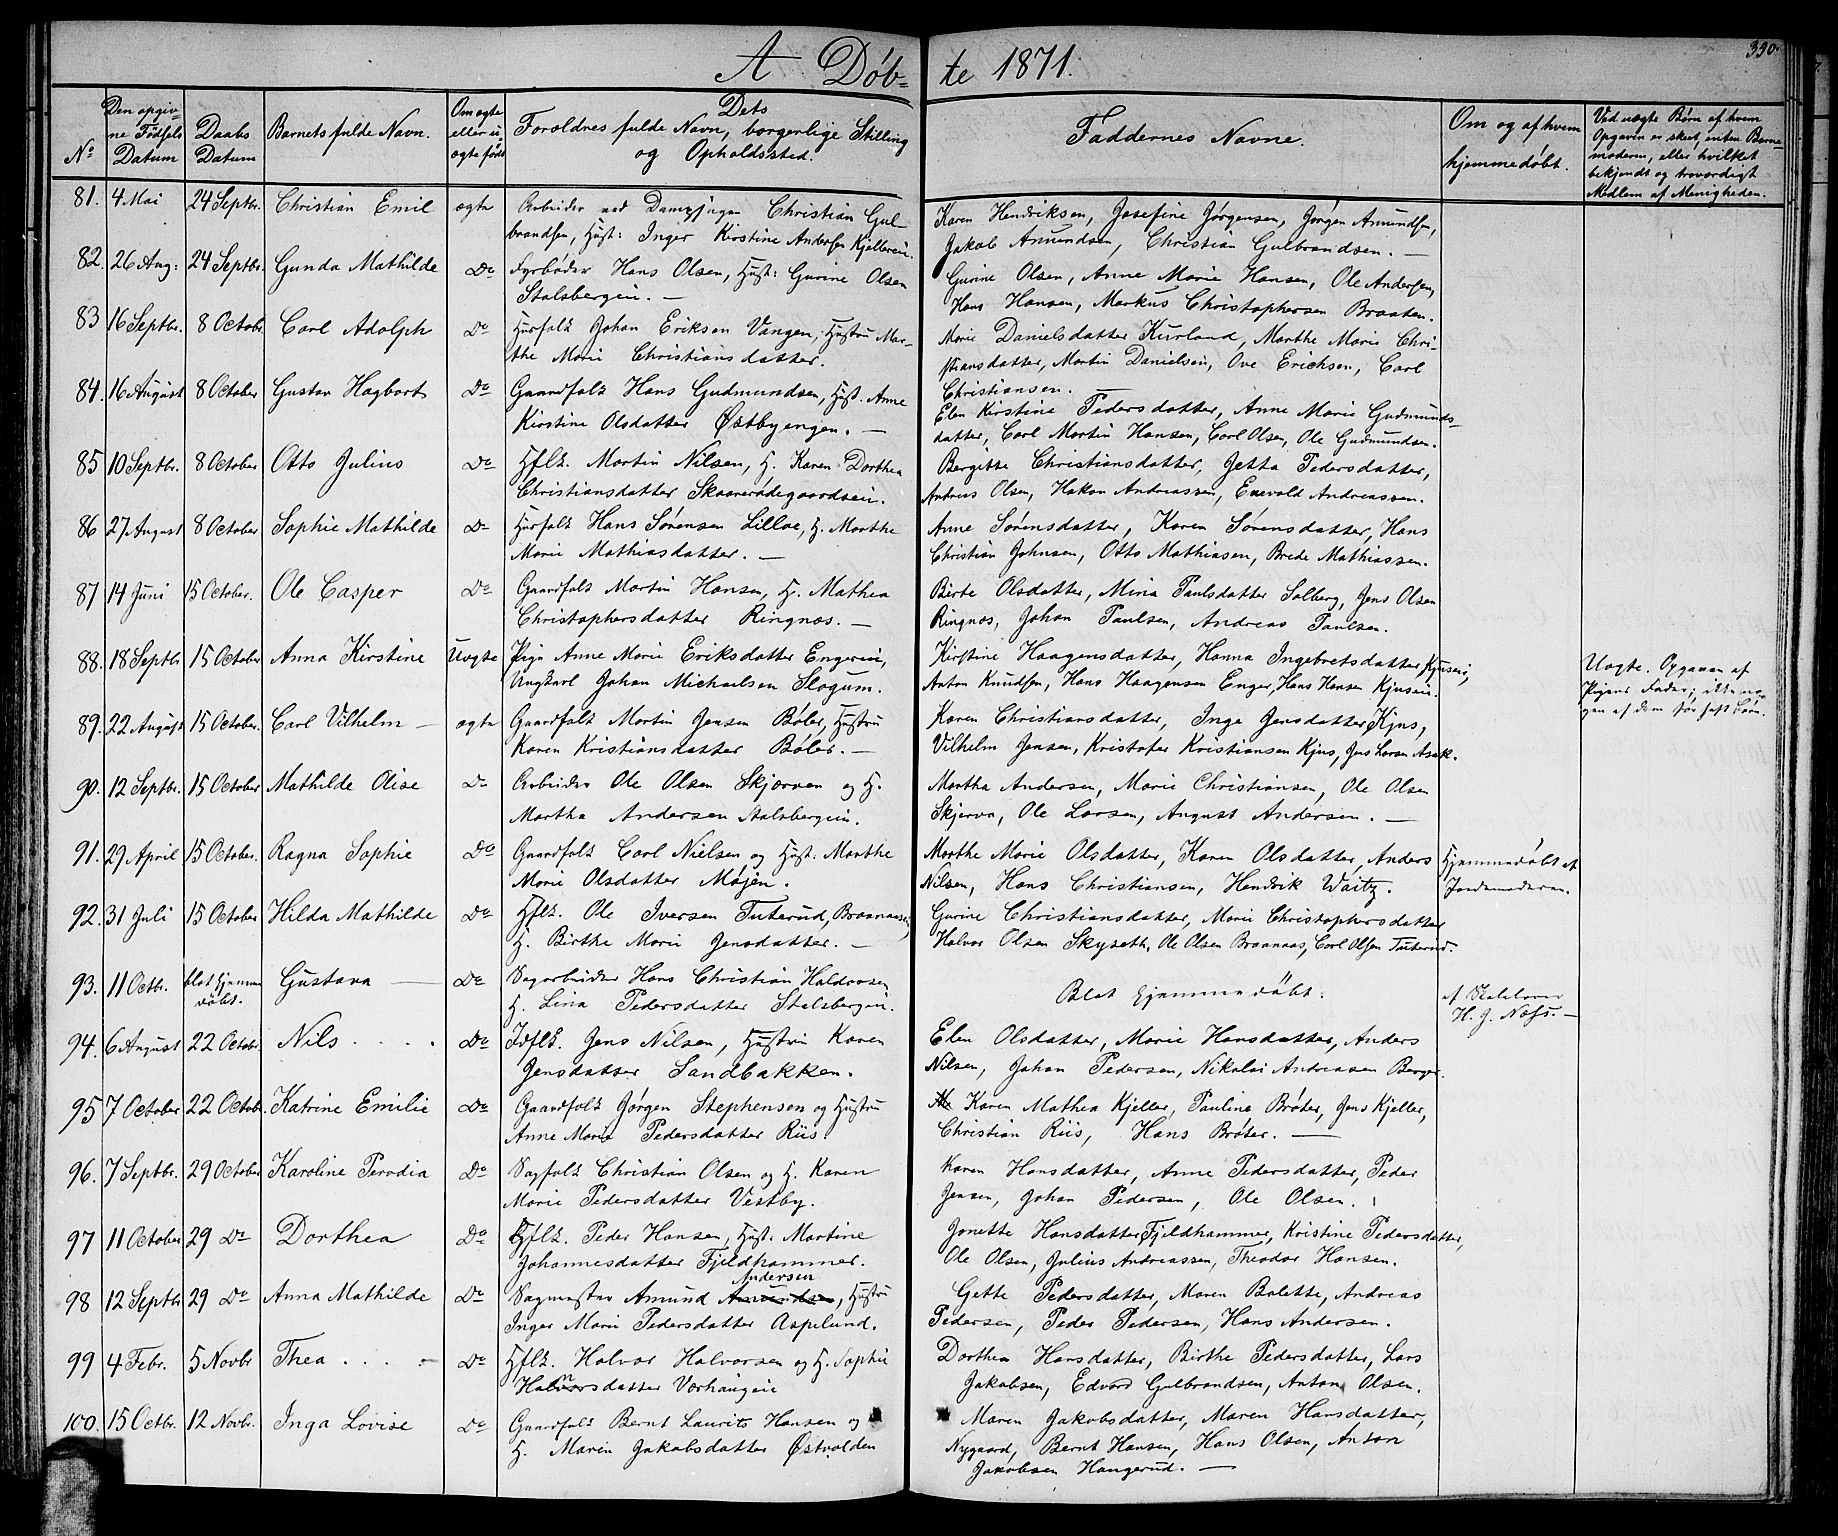 A Døb- te 1871. 390.
No
Den opgivne Fødsels Datum
Daabs Datum
Barnets fulde Navn.
Om ægte eller uægte født
Dets Forældres fulde Navn, borgerlige Stilling og Opholdssted.
Faddernes Navne.
Om og af hvem hjemmedøbt.
Ved uægte Børn af hvem Opgaven er skeet, enten Barnemoderen, eller hvilket bekjendt og troværdigt Medlem af Menigheden.
81. 4 Mai 24 Septbr. Christian Emil ægte Arbeider ved Dampsagen Christian Gul- Karen Hendriksen, Josefine Jørgensen, Jørgen Amundsen,
brandsen, Hust: Inger Kirstine Andersen Kjellereie. Jakob Amundsen, Christian Gulbrandsen. —
82. 26 Aug: 24 Septbr. Gunda Mathilde Do Fyrbøder Hans Olsen, Hust: Gurine Olsen Gurine Olsen, Anne Marie Hansen, Ole Andersen,
Stalsbergeie. — Hans Hansen, Markus Christophersen Braaten.
83 16 Septbr. 8 Octobr Carl Adolph Do Husfolk Johan Eriksen Vangen, Hustru Mar- Marie Danielsdatter Kurland, Marthe Marie Chri-
the Marie Christiansdatter. stiansdatter, Martin Danielsen, Ove Erichsen, Carl
Christiansen.
84. 16 August 8 October Gustav Hagbart Do Gaardfolk Hans Gudmundsen, Hust. Anne Elen Kirstine Pedersdatter, Anne Marie Gudmunds-
Kirstine Olsdatter Østbyengen. — datter, Carl Martin Hansen, Carl Olsen, Ole Gudmundsen.
85 10 Septbr. 8 October Otto Julius Do Hflk. Martin Nilsen, H. Karen Dorthea Bergitte Christiansdatter, Jetta Pedersdatter,
Christiansdatter Skaarerødegaardseie. Andreas Olsen, Hakon Andreassen, Enevold Andreassen.
86 27 August 8 October Sophie Mathilde Do Husfolk Hans Sørensen Lilloe, H. Marthe Anne Sørensdatter, Karen Sørensdatter, Hans
Marie Mathiasdatter. — Christian Johnsen, Otto Mathiasen, Brede Mathiassen.
87 14 Juni 15 October. Ole Casper Do Gaardfolk Martin Hansen, H. Mathea Birte Olsdatter, Mina Paulsdatter Solberg, Jens Olsen
Christophersdatter Ringnæs. — Ringnæs, Johan Paulsen, Andreas Paulsen.
88. 18 Septbr 15 October Anna Kirstine Uægte Pige Anne Marie Eriksdatter Engereie, Kirstine Haagensdatter, Hanna Ingebretsdatter Kjuseie, Uægte. Opgaven af
Ungkarl Johan Michaelsen Slogum. Anton Knudsen, Hans Haagensen Enger, Hans Hansen Kjuseie. Pigens Fader; itte no-
gen af dem før havt Børn.
89. 22 August 15 October. Carl Vilhelm — ægte Gaardfolk Martin Jensen Bøler, Hustru Karen Christiansdatter, Inge Jensdatter Kjus,
Karen Kristiansdatter Bøler. — Vilhelm Jensen, Kristofer Kristiansen Kjus, Jens Larsen Asak.
90. 12 Septbr. 15 October Mathilde Olise Do Arbeider Ole Olsen Skjærven og H. Martha Andersen, Marie Christiansen, Ole Olsen
Martha Andersen Stalsbergeie. Skjerva, Ole Larsen, August Andersen. —
91. 29 April 15 October. Ragna Sophie Do Gaardfolk Carl Nielsen og Hust: Marthe Marthe Marie Olsdatter, Karen Olsdatter, Anders Hjemmedøbt af
Marie Olsdatter Møjen. Nilsen, Hans Christiansen, Hendrik Waitz. Jordemoderen.
92. 31 Juli 15 October Hilda Mathilde Do Hflk. Ole Iversen Tuterud, Braanaas, Gurine Christiansdatter, Marie Christophersdatter
H. Birthe Marie Jensdatter. — Halvor Olsen Skyseth, Ole Olsen Braanaas, Carl Olsen Tuterud.
93. 11 Octbr. blot hjemmedøbt. Gustava — Do Sagarbeider Hans Christian Haldorsen Blot hjemmedøbt. af Skolelærer
H. Lina Pedersdatter Stalsbergeie. H. J. Næss. —
94. 6 August 22 Octobr. Nils . . . . Do Idflk. Jens Nilsen, Hustru Karen Elen Olsdatter, Marie Hansdatter, Anders
Jensdatter Sandbakken. Nilsen, Johan Pedersen, Nikolai Andreasen Berger.
95 7 October 22 Octobr. Katrine Emilie Do Gaardfolk Jørgen Stephensen og Hustru Karen Mathea Kjeller, Pauline Brøter, Jens Kjeller,
Anne Marie Pedersdatter Riis. Christian Riis, Hans Brøter. —
96. 7 Septbr. 29 October Karoline Perodia Do Sagfolk Christian Olsen og H. Karen Karen Hansdatter, Anne Pedersdatter, Peder
Marie Pedersdatter Vestby. Jensen, Johan Pedersen, Ole Olsen.
97 11 October 29 Do Dorthea Do Hflk. Peder Hansen, Hust: Martine Jonette Hansdatter Fjeldhammer, Kristine Pedersdatter,
Johannesdatter Fjeldhammer. Ole Olsen, Julius Andreassen, Theodor Hansen.
98 12 Septbr 29 Do Anna Mathilde Do Sagmester Amund Amundsen Andersen, Hustru Gette Pedersdatter, Maren Bolette, Andreas
Inger Marie Pedersdatter Aspelund. Pedersen, Peder Pedersen, Hans Andersen.
99 4 Febr. 5 Novbr Thea . . . — Do Hflk. Halvor Halvorsen og H. Sophie Dorthea Hansdatter, Birthe Pedersdatter, Lars
Halvorsdatter Værhaugeie Jakobsen, Edvard Gulbrandsen, Anton Olsen.
100. 15 Octbr. 12 Novbr. Inga Lovise Do Gaardfolk Bernt Laurits Hansen og Maren Jakobsdatter, Maren Hansdatter,
H. Maren Jakobsdatter Østvolden Nygaard, Bernt Hansen, Hans Olsen, Anton
Jakobsen Haugerud. —